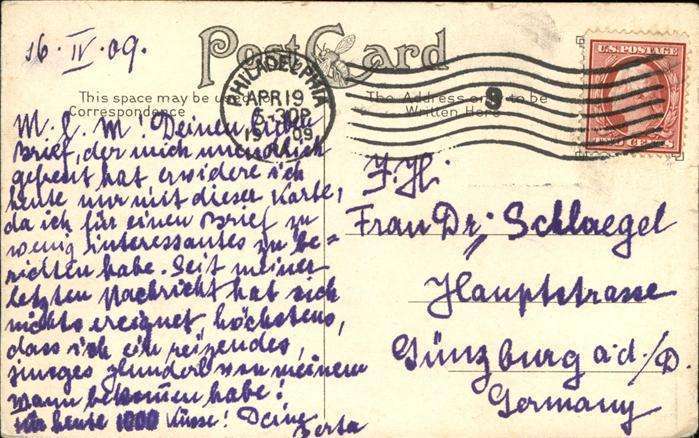 16. IV. 09.
Post Card
This space may be
Correspondence
The Address to be
Written Here
PHILADELPHIA
APR 19
30P
1909
9
U.S. POSTAGE
TWO CENTS
M. l. M! Deinen lieben
Brief, der mich unendlich
gefreut hat erwidere ich
heute nur mit dieser Karte,
da ich für einen Brief zu
wenig interessantes zu be=
richten habe. Seit meiner
letzten Nachricht hat sich
nichts ereignet, höchstens,
dass ich ein reizendes,
junges Hunderl von meinem
Mann bekommen habe!
Für heute 1000 Küsse! Deine
Berta
F. H.
Frau Dr. Schlaegel
Hauptstrasse
Günzburg a/d. D.
Germany